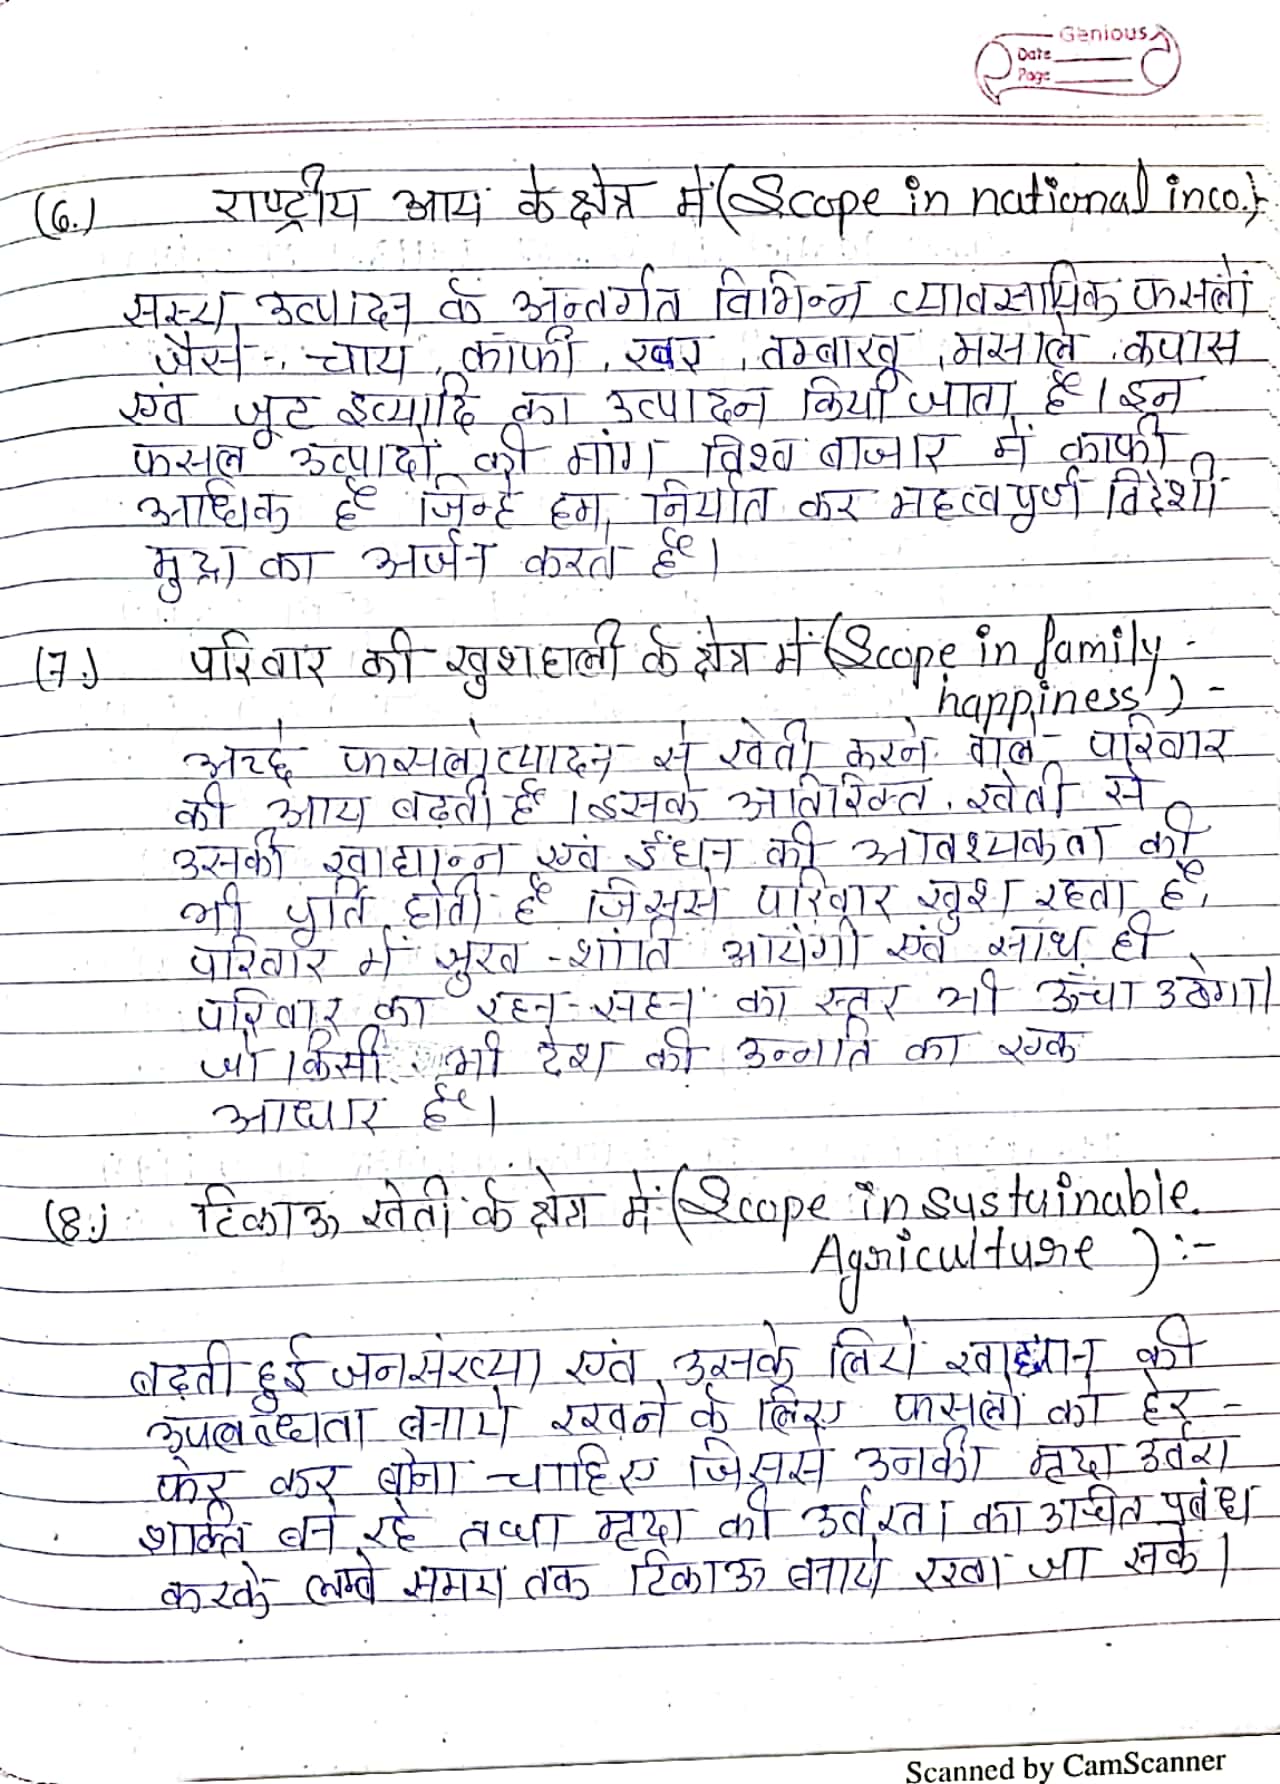 Genious
Date
Page
(6.) राष्ट्रीय आय के क्षेत्र में (Scope in national inco.)-
सस्य उत्पादन के अन्तर्गत विभिन्न व्यावसायिक फसलों
जैसे - चाय, कॉफी, रबर, तम्बाखू, मसाले, कपास
एवं जूट इत्यादि का उत्पादन किया जाता है। इन
फसल उत्पादों की मांग विश्व बाजार में काफी
अधिक है जिन्हे हम, निर्यात कर महत्वपूर्ण विदेशी
मुद्रा का अर्जन करते है।
(7.) परिवार की खुशहाली के क्षेत्र में (Scope in family
happiness) -
अच्छे फसलोत्पादन से खेती करने वाले परिवार
की आय बढ़ती है। इसके अतिरिक्त, खेती से
उसकी खाद्यान्न एवं ईंधन की आवश्यकता की
भी पूर्ति होती है जिससे परिवार खुश रहता है,
परिवार में सुख-शांति आयेगी एवं साथ ही
परिवार का रहन-सहन का स्तर भी ऊँचा उठेगा।
जो किसी भी देश की उन्नति का एक
आधार है।
(8.) टिकाऊ खेती के क्षेत्र में (Scope in sustainable
Agriculture) :-
बढ़ती हुई जनसंख्या एवं उसके लिये खाद्यान की
उपलब्धता बनाये रखने के लिए फसलों को हेर -
फेर कर बोना चाहिए जिससे उनकी मृदा उर्वरा
शक्ति बने रहे तथा मृदा की उर्वरता का उचित प्रबंध
करके लम्बे समय तक टिकाऊ बनाये रखा जा सके।
Scanned by CamScanner